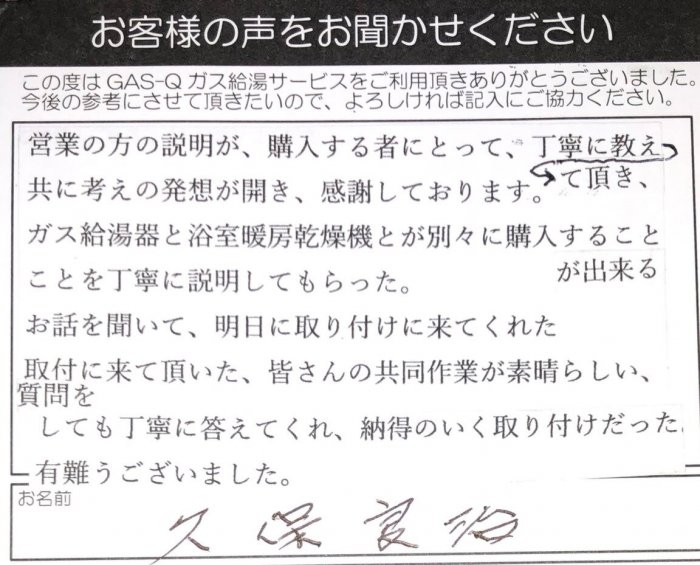 お客様の声をお聞かせください
この度は GAS-Q ガス給湯サービスをご利用頂きありがとうございました。
今後の参考にさせて頂きたいので、よろしければ記入にご協力ください。
営業の方の説明が、購入する者にとって、丁寧に教え
て頂き、
共に考えの発想が開き、感謝しております。
ガス給湯器と浴室暖房乾燥機とが別々に購入すること
が出来る
ことを丁寧に説明してもらった。
お話を聞いて、明日に取り付けに来てくれた
取付に来て頂いた、皆さんの共同作業が素晴らしい、
質問を
しても丁寧に答えてくれ、納得のいく取り付けだった
有難うございました。
お名前
久保良